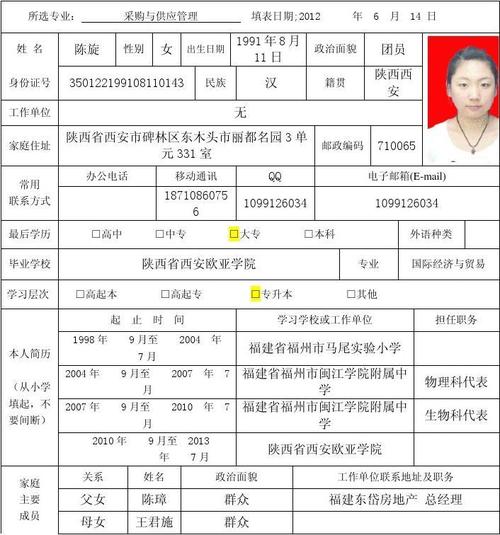 所选专业： 采购与供应管理 填表日期;2012 年 6 月 14 日
姓 名 陈旋 性别 女 出生日期 1991 年 8 月 11 日 政治面貌 团员
身份证号 350122199108110143 民族 汉 籍贯 陕西西安
工作单位 无
家庭住址 陕西省西安市碑林区东木头市丽都名园 3 单元 331 室 邮政编码 710065
常用联系方式 办公电话 移动通讯 QQ 电子邮箱(E-mail)
18710860756 1099126034 1099126034
最后学历 □高中 □中专 □大专 □本科 外语种类
毕业学校 陕西省西安欧亚学院 专业 国际经济与贸易
学习层次 □高起本 □高起专 □专升本 □其他
本人简历（从小学填起，不要间断） 起 止 时 间 学习学校或工作单位 担任职务
1998 年 9 月至 2004 年 7 月 福建省福州市马尾实验小学
2004 年 9 月至 2007 年 7 月 福建省福州市闽江学院附属中学 物理科代表
2007 年 9 月至 2010 年 7 月 福建省福州市闽江学院附属中学 生物科代表
2010 年 9 月至 2013 年 7 月 陕西省西安欧亚学院
家庭主要成员 关系 姓名 政治面貌 工作单位联系地址及职务
父女 陈璋 群众 福建东岱房地产 总经理
母女 王君施 群众